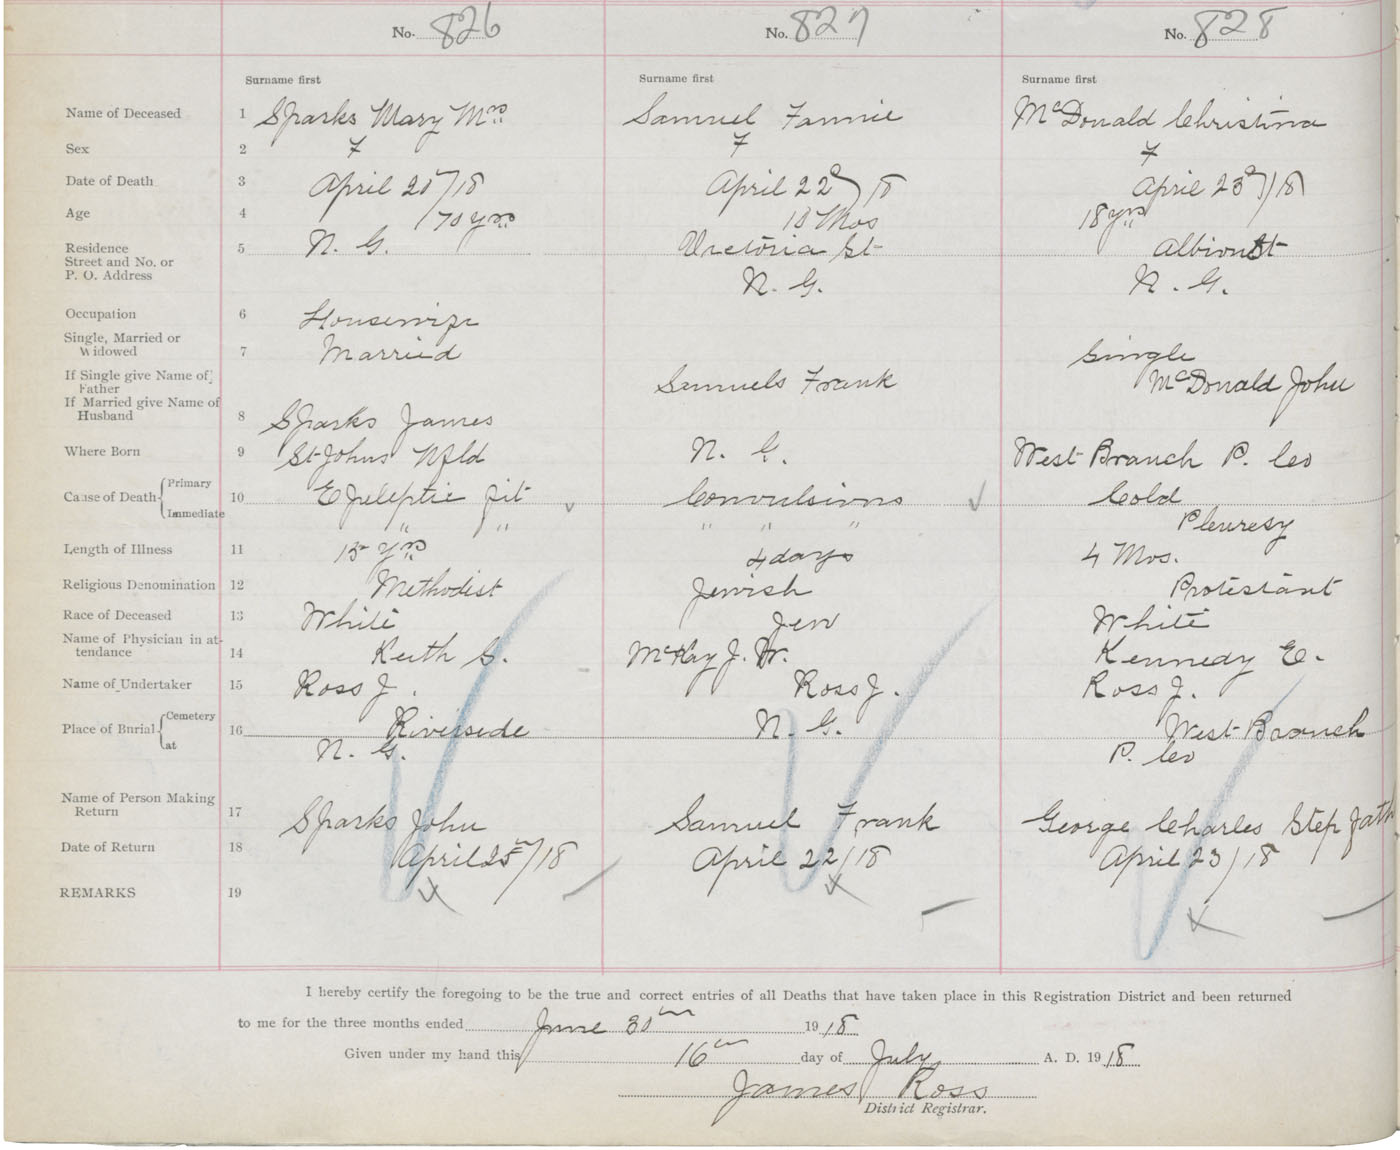 No. 826 No. 827 No. 828
Surname first Surname first Surname first
Name of Deceased 1 Sparks Mary Mrs Samuel Fannie McDonald Christina
Sex 2 F F F
Date of Death 3 April 25/18 April 22d/18 April 23d/18
Age 4 70 yrs 18 Mos 18 yrs
Residence 5 N. G. Victoria St Albion St
Street and No. or
P. O. Address N. G. N. G.
Occupation 6 Housewife
Single, Married or
Widowed 7 Married Single
If Single give Name of
Father Samuels Frank McDonald John
If Married give Name of
Husband 8 Sparks James
Where Born 9 St Johns Nfld N. G. West Branch P. Co
Cause of Death Primary 10 Epileptic fit Convulsions Cold
Immediate " " " " " Pleuresy
Length of Illness 11 15 yrs 4 days 4 Mos.
Religious Denomination 12 Methodist Jewish Protestant
Race of Deceased 13 White Jew White
Name of Physician in at-
tendance 14 Keith G. McKay J. W. Kennedy E.
Name of Undertaker 15 Ross J. Ross J. Ross J.
Place of Burial Cemetery 16 Riverside N. G. West Branch
at N. G. P. Co
Name of Person Making
Return 17 Sparks John Samuel Frank George Charles Step fath
Date of Return 18 April 25th/18 April 22/18 April 23/18
REMARKS 19
I hereby certify the foregoing to be the true and correct entries of all Deaths that have taken place in this Registration District and been returned
to me for the three months ended June 30th 1918
Given under my hand this 16th day of July A. D. 1918
James Ross
District Registrar.